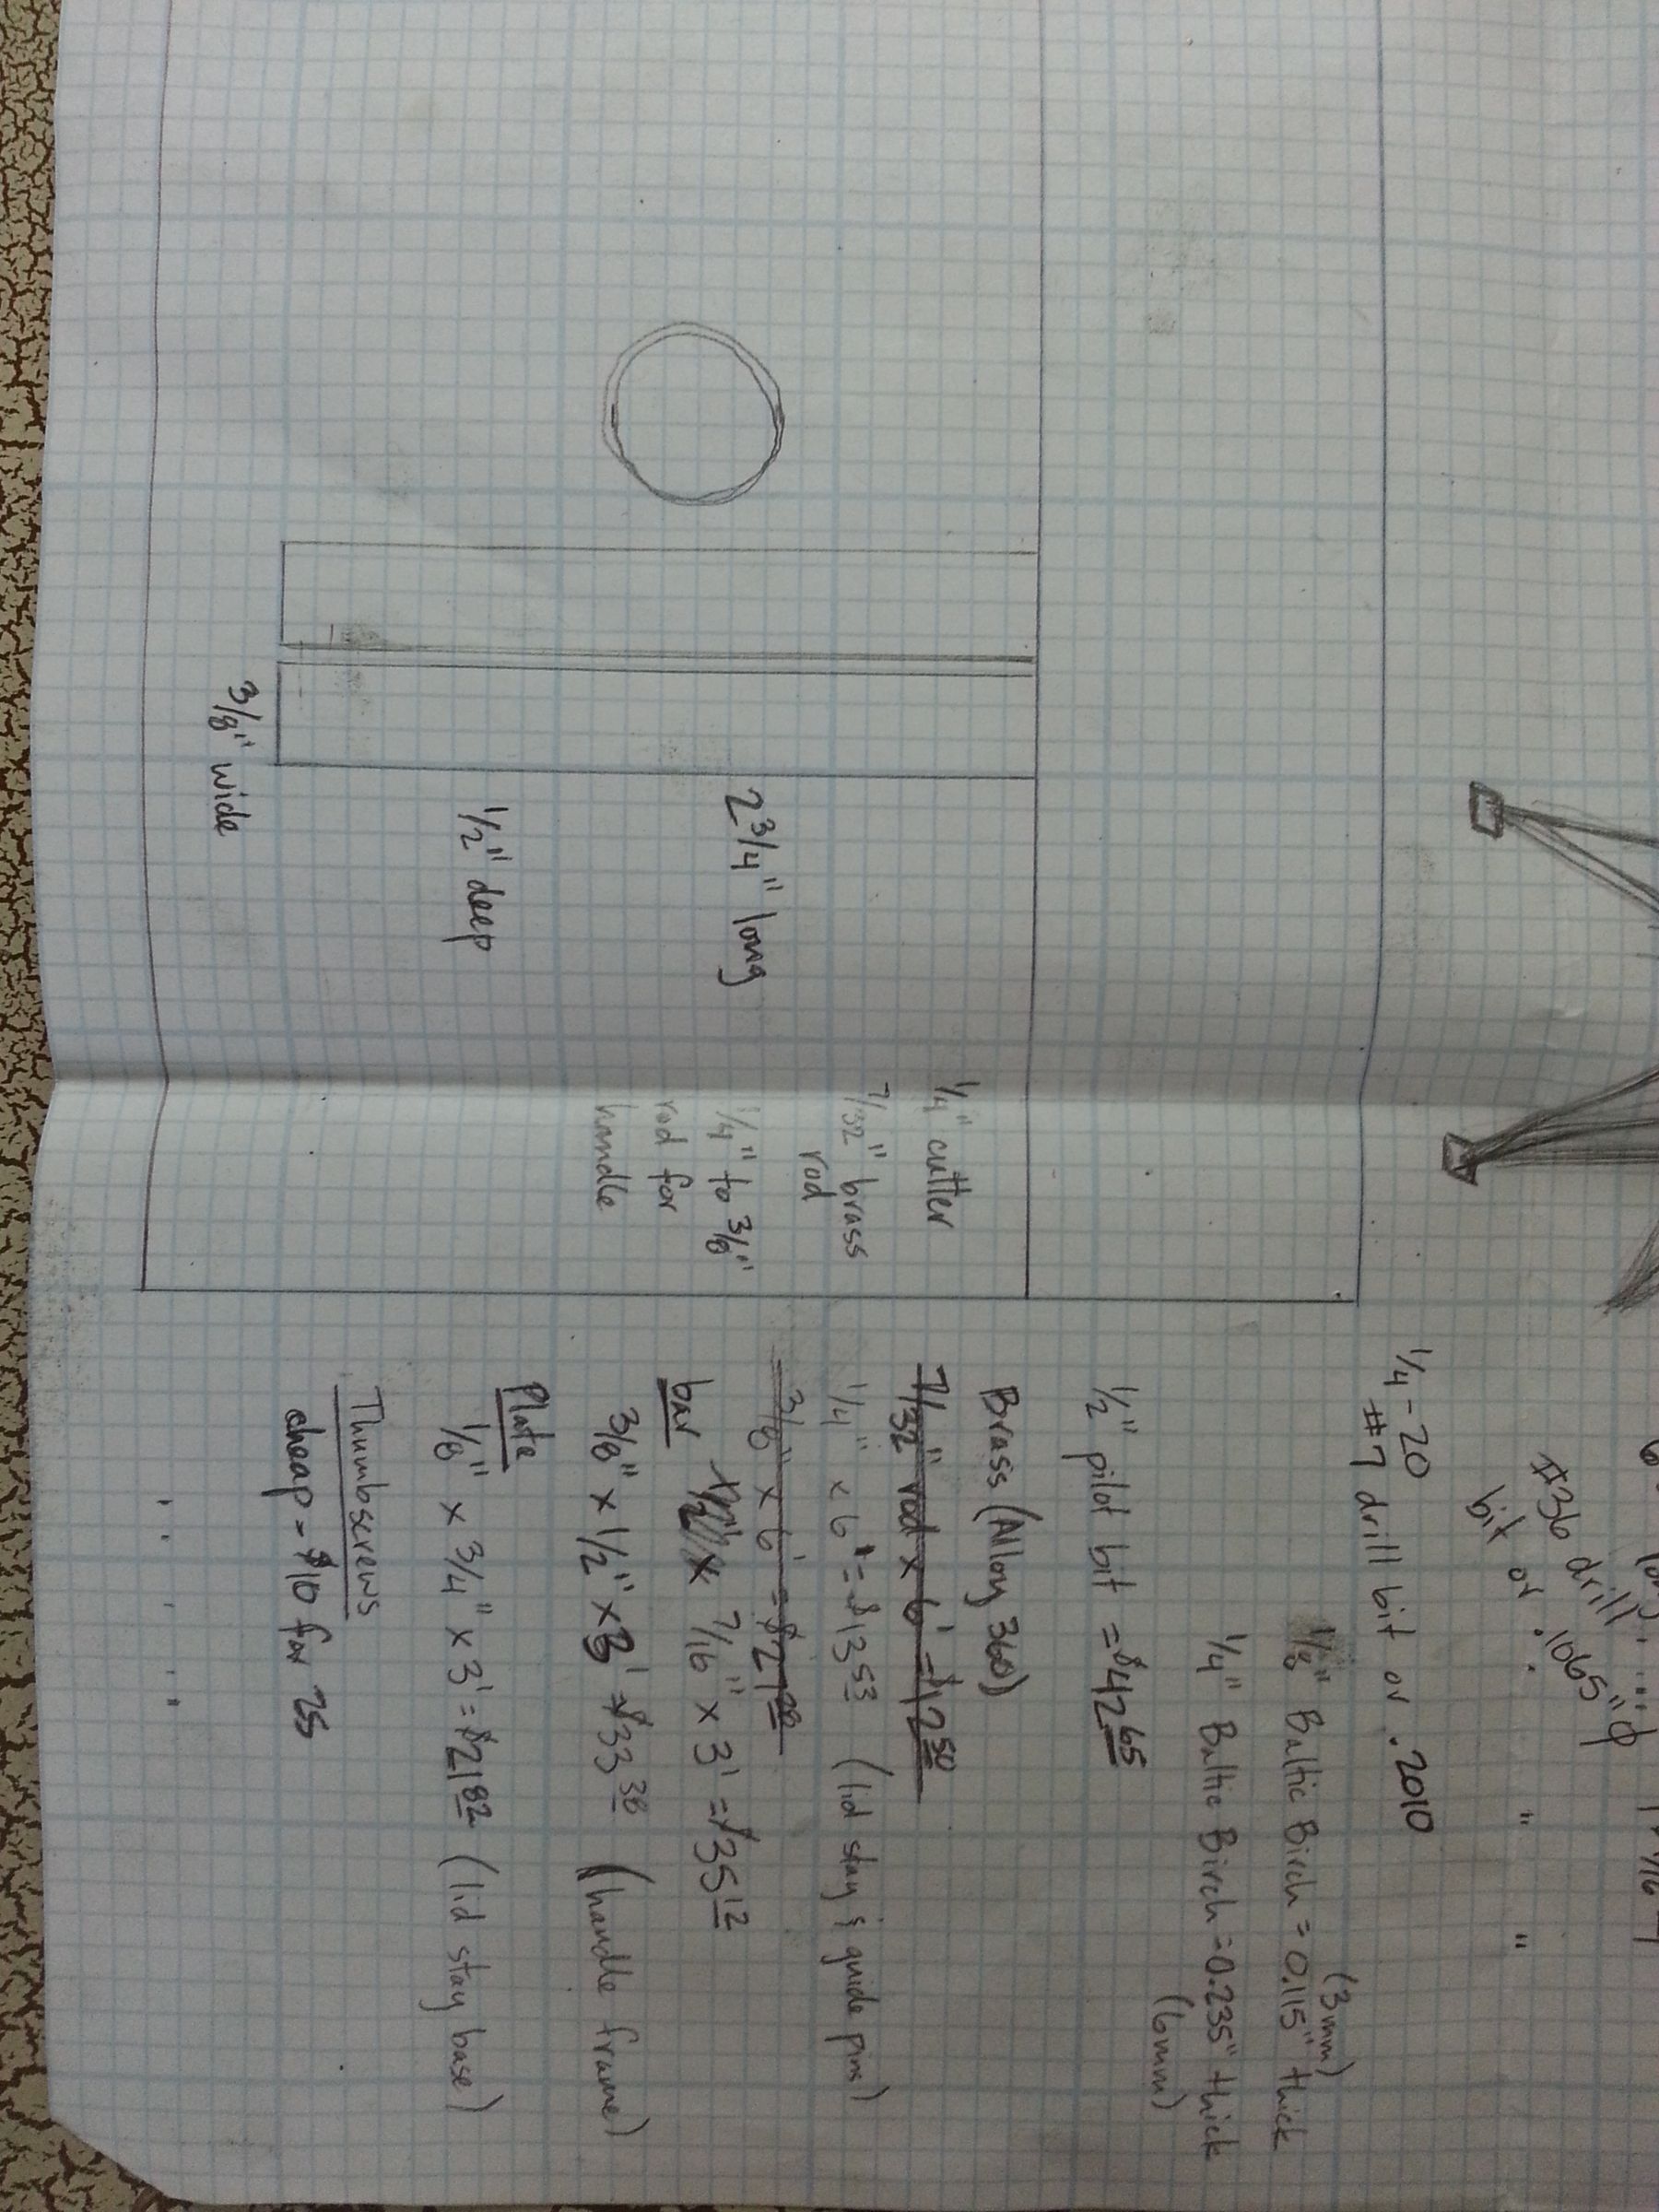 #36 drill
bit or .1065"φ
" "
1/4-20
#7 drill bit or .2010
(3mm)
1/8" Baltic Birch = 0.115" thick
1/4" Baltic Birch = 0.235" thick
(6mm)
1/2" pilot bit = $42 65
Brass (Alloy 360)
7/32" rod x 6' = $12 50
1/4" x 6' = $13 53 (lid stay & guide pins)
3/8" x 6' = $21 00
bar
1/2" x 7/16" x 3' = $35 12
3/8" x 1/2" x 3' = $33 38 (handle frame)
Plate
1/8" x 3/4" x 3' = $21 82 (lid stay base)
Thumbscrews
cheap - $10 for 25
1/4" cutter
7/32" brass
rod
1/4" to 3/8"
rod for
handle
2 3/4" long
1/2" deep
3/8" wide